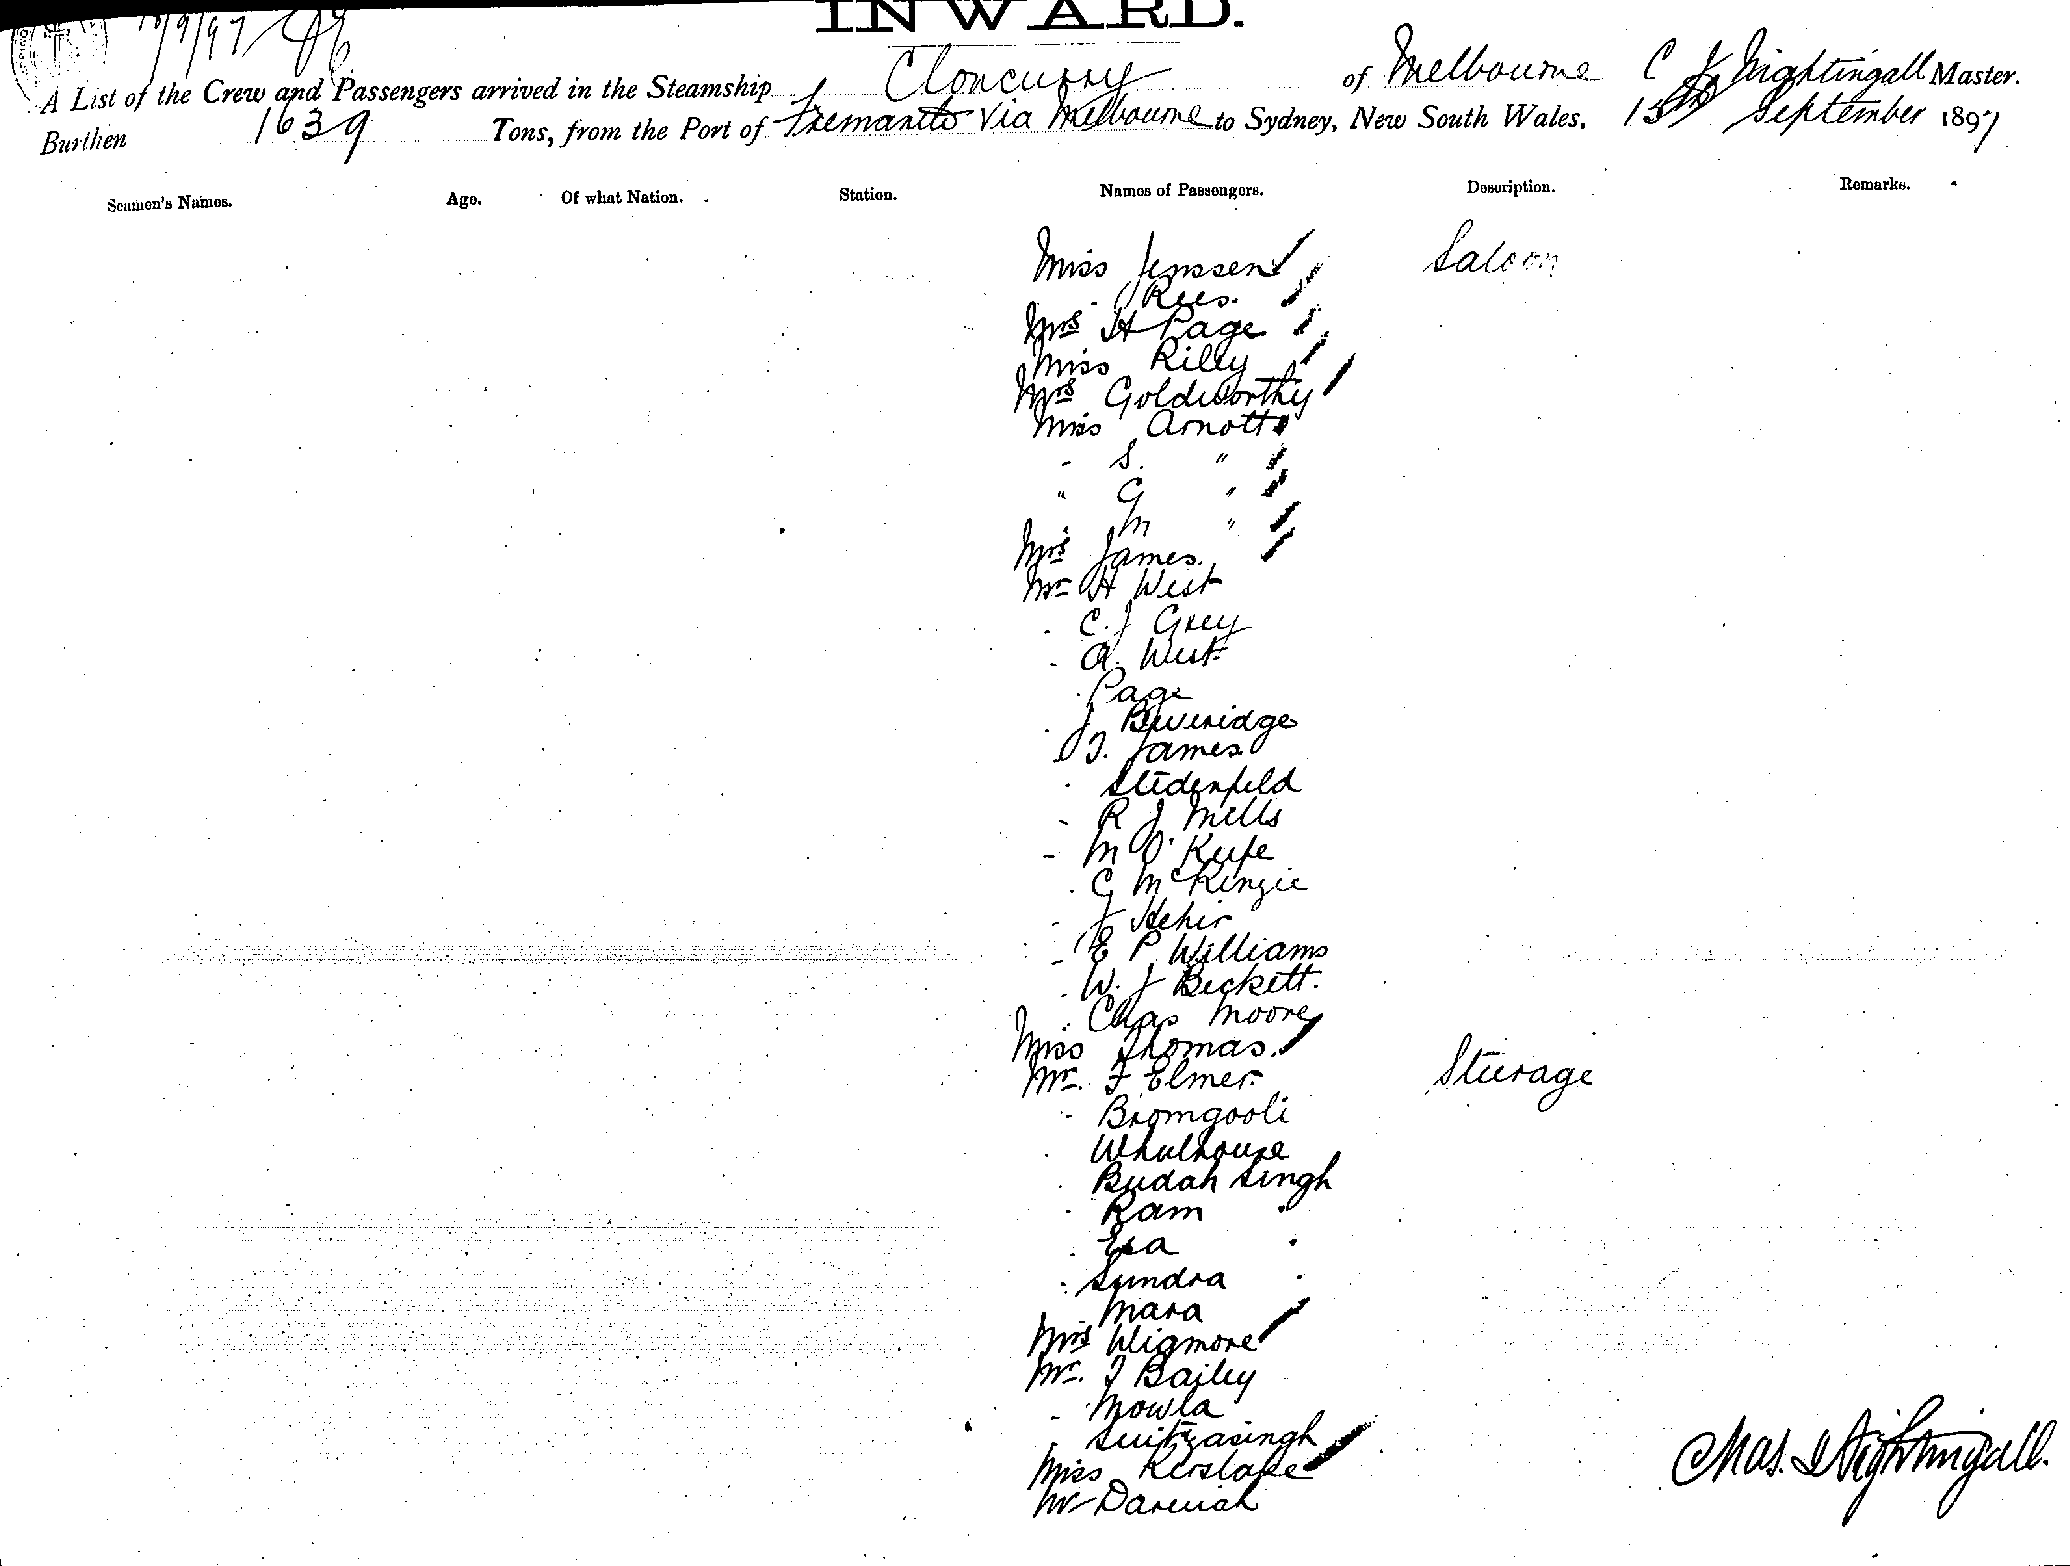 INWARD.
A List of the Crew and Passengers arrived in the Steamship Cloncurry of Melbourne C Nightingall Master.
Burthen 1639 Tons, from the Port of Fremantle Via Melbourne to Sydney, New South Wales, 15th September 1897
Seamen's Names. Age. Of what Nation. Station. Names of Passengers. Description. Remarks.
Miss Jenssen Saloon
- Rees.
Mrs H Page
Miss Rilly
Mrs Goldsworthy
Miss Arnott
- S. "
" G "
" M "
Mrs James.
Mr H West
- C. J Grey
- A. West
- Page
- J Beveridge
- T. James
- Stidenfeld
- R J Mells
- M O'Keefe
- G McKinzie
- J Hehir
- E P Williams
- W. J Beckett.
- Chas Moore
Miss Thomas. Steerage
Mr. F Elmer
- Bromgooli
- Whulhouse
- Budah Singh
- Ram "
- Esa "
- Sundra "
- Mara
Mrs Wigmore
Mr. J Bailey
- Mowla
- Suitzasingh
Miss Kerslake
Mr Dareiah
Chas. Nightingall.